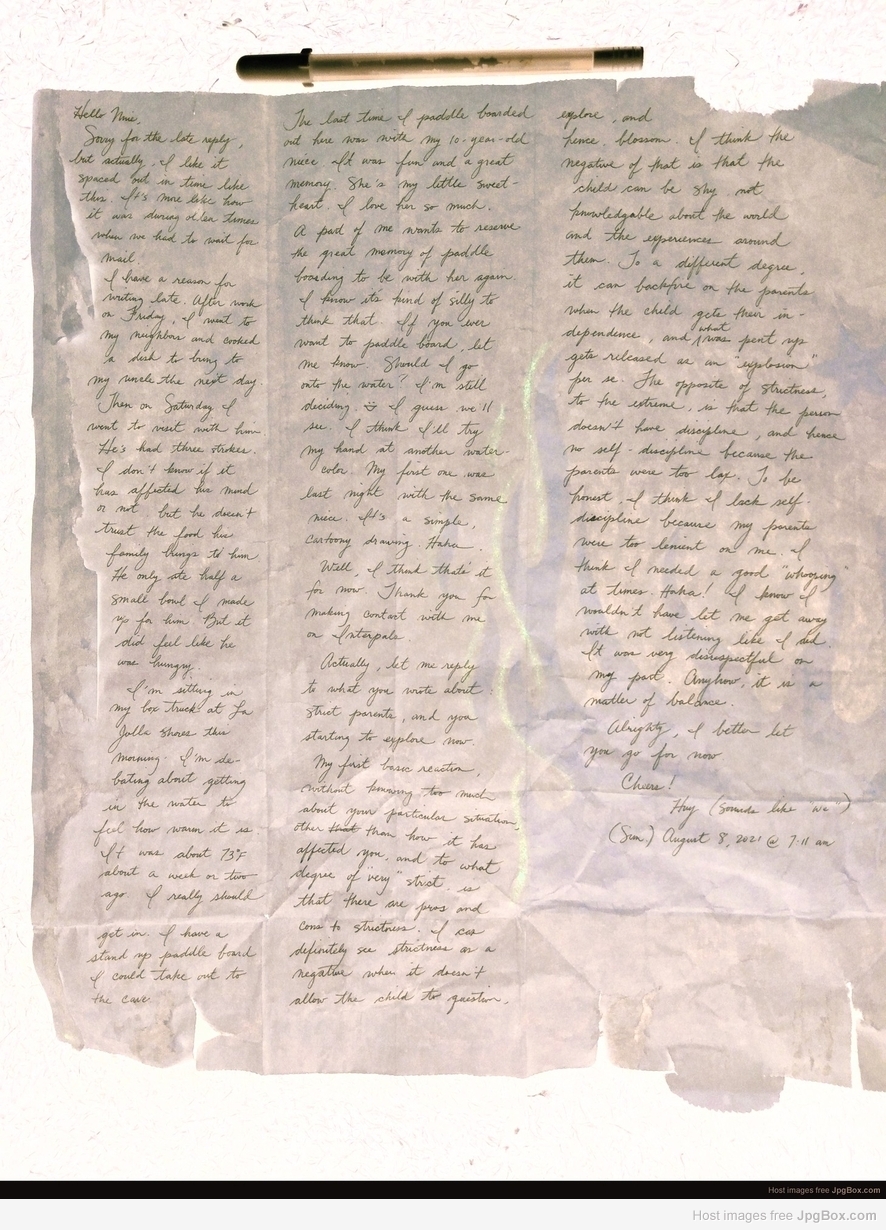 Hello Mine,
Sorry for the late reply,
but actually, I like it
spaced out in time like
this. It's more like how
it was during olden times
when we had to wait for
mail.
I have a reason for
writing late. After work
on Friday, I went to
my neighbors and cooked
a dish to bring to
my uncle the next day.
Then on Saturday I
went to visit with him
He's had three strokes.
I don't know if it
has affected his mind
or not, but he doesn't
trust the food his
family brings to him
He only ate half a
small bowl I made
up for him. But it
did feel like he
was hungry.
I'm sitting in
my box truck at La
Jolla Shores this
morning. I'm de-
bating about getting
in the water to
feel how warm it is.
It was about 73°F
about a week or two
ago. I really should
get in. I have a
stand up paddle board
I could take out to
the cave.
The last time I paddle boarded
out here was with my 10-year-old
niece. It was fun and a great
memory. She's my little sweet-
heart. I love her so much.
A part of me wants to reserve
the great memory of paddle
boarding to be with her again.
I know its kind of silly to
think that. If you ever
want to paddle board, let
me know. Should I go
onto the water? I'm still
deciding. I guess we'll
see. I think I'll try
my hand at another water-
color. My first one was
last night with the same
niece. It's a simple,
cartoony drawing. Haha.
Well, I think that's it
for now. Thank you for
making contact with me
on Interpals.
Actually, let me reply
to what you wrote about:
strict parents, and you
starting to explore now.
My first basic reaction,
without knowing too much
about your particular situation,
other than how it has
affected you, and to what
degree of "very" strict, is
that there are pros and
cons to strictness. I can
definitely see strictness as a
negative when it doesn't
allow the child to question,
explore, and
hence, blossom. I think the
negative of that is that the
child can be shy, not
knowledgable about the world
and the experiences around
them. To a different degree,
it can backfire on the parents
when the child gets their in-
dependence, and what was pent up
gets released as an "explosion"
per se. The opposite of strictness,
to the extreme, is that the person
doesn't have discipline, and hence
no self-discipline because the
parents were too lax. To be
honest, I think I lack self-
discipline because my parents
were too lenient on me. I
think I needed a good "whooping"
at times. Haha! I know I
wouldn't have let me get away
with not listening like I did.
It was very disrespectful on
my part. Anyhow, it is a
matter of balance.
Alrighty, I better let
you go for now
Cheers!
Huy (sounds like "we")
(Sun.) August 8, 2021 @ 7:11 am
Host images free JpgBox.com
Host images free JpgBox.com